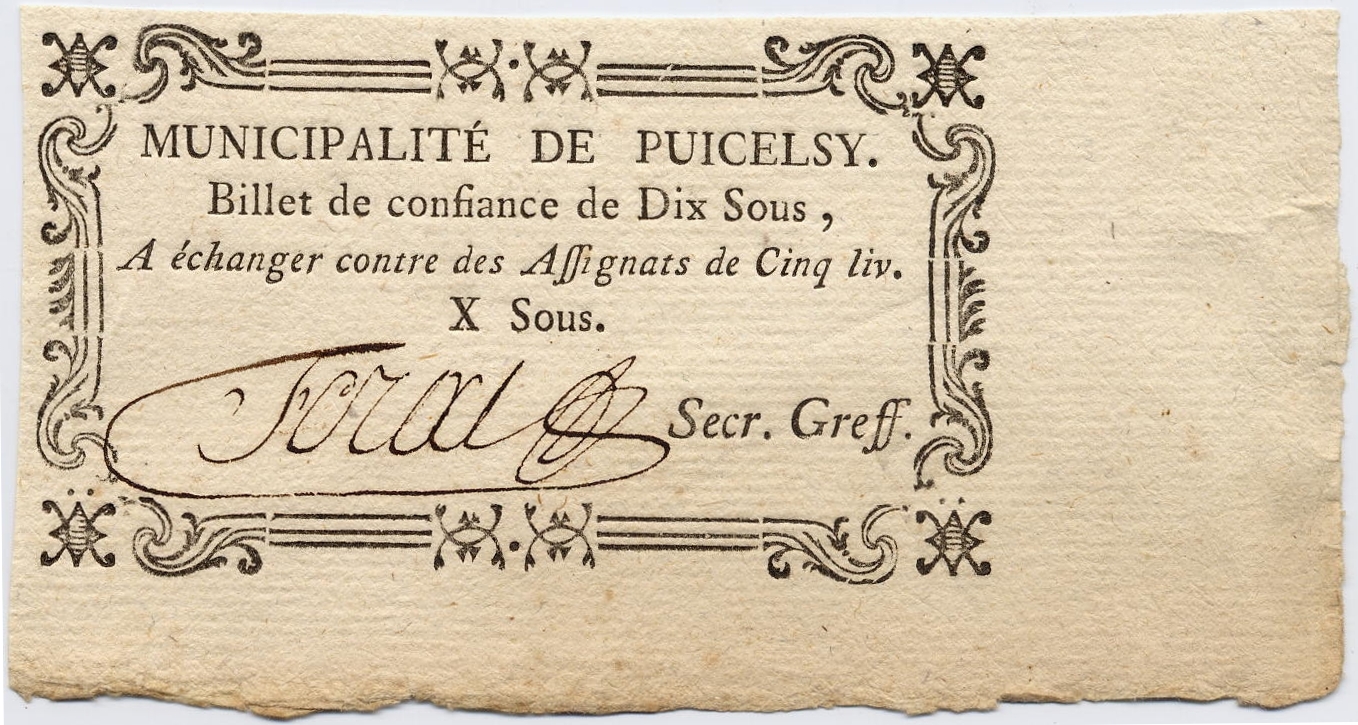 MUNICIPALITÉ DE PUICELSY.
Billet de confiance de Dix Sous ,
A échanger contre des Aſſignats de Cinq liv.
X Sous.
Secr. Greff.